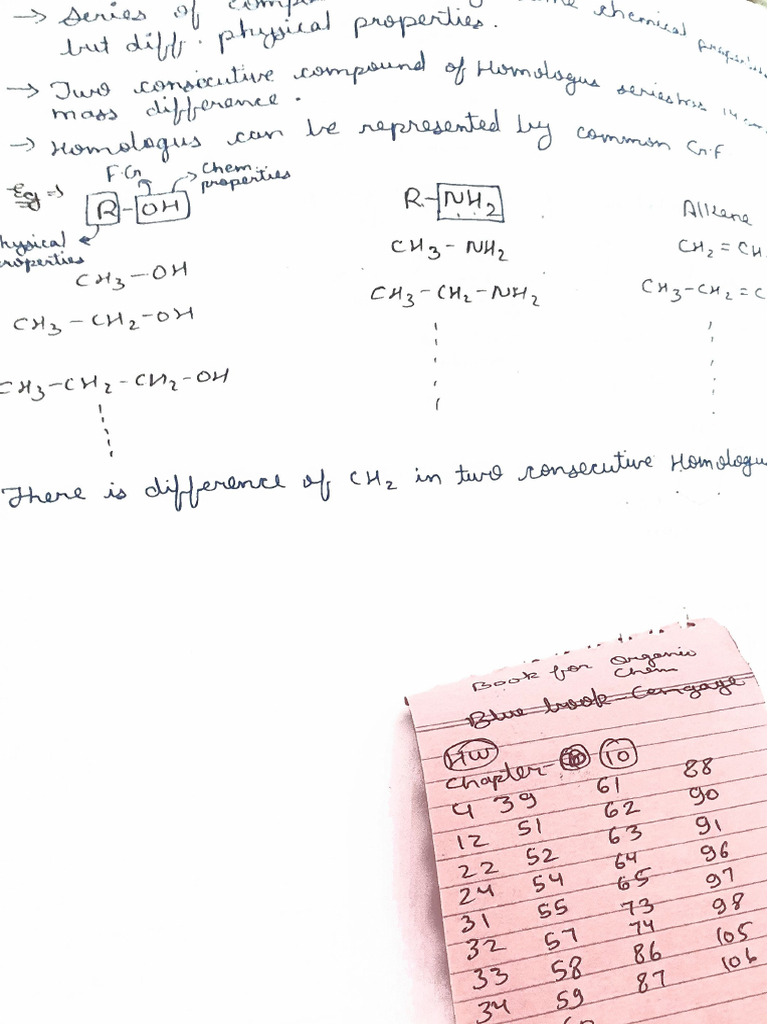 → Series of
but diff. physical properties.
chemical
→ Two consecutive compound of Homologus series
mass difference.
→ Homologus can be represented by common G.F
Eg ⇒
F.G
Chem.
properties
R-OH
hysical
roperties
CH3-OH
CH3-CH2-OH
CH3-CH2-CH2-OH
R-NH2
CH3-NH2
CH3-CH2-NH2
Alkene
CH2=CH
CH3-CH2=C
There is difference of CH2 in two consecutive Homologu
Book for Organic
Chem
Blue book Cengage
HW
Chapter- 10
4 39 61 88
12 51 62 90
22 52 63 91
24 54 64 96
31 55 65 97
32 57 73 98
33 58 74 105
34 59 86 106
87